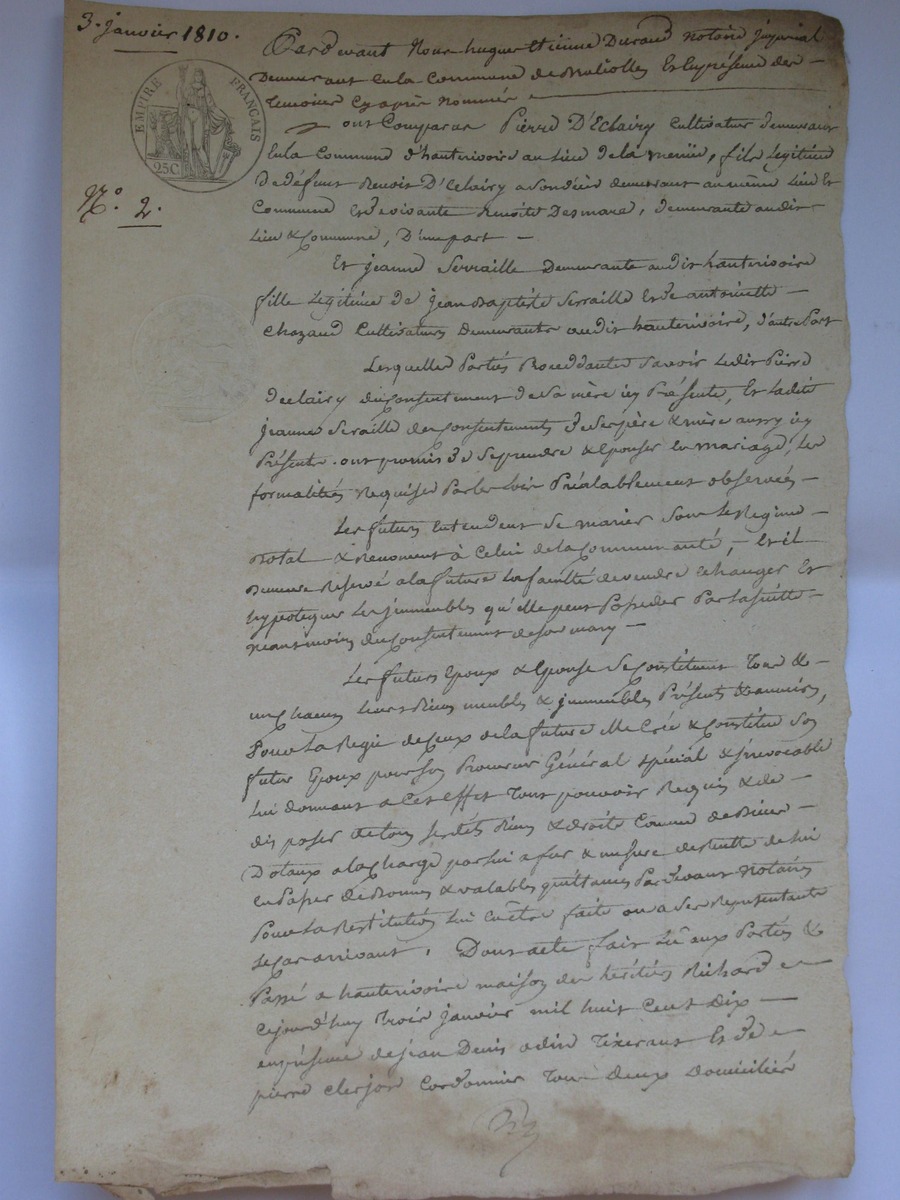 3. janvier 1810.
EMPIRE FRANÇAIS
25C
N.° 2.
Pardevant Nous hugues Etienne Durand notaire jmperial
Demeurant en la Commune de et en présence des
temoins cy après nommés
ont Comparus Pierre D'Eclairy Cultivateur demeurant
En la Commune d'hauterivoire au Lieu de la , fils Legitime
De défunt Benoit D'Eclairy a Son décès demeurant au même Lieu Et
Commune Et de vivante Benoite Desmare, demeurante audit
Lieu & Commune, D'une part —
Et jeanne Serraille Demeurante audit hauterivoire
fille Legitime de jean Baptiste Serraille Et de antoinette —
Chazaud Cultivateurs Demeurants audit hauterivoire, d'autre Part
Lesquelles Parties Procedantes Savoir Ledit Pierre
Declairy du Consentement de Sa mère icy Présente, Et Ladite
jeanne Seraille du Consentement de Ses père & mère aussy icy
Présents. ont promis de Se prendre & Epouser En mariage, Les
formalités Requises Par les Loix Préalablement observées —
Les futurs Entendent Se marier Sous Le Regime
Dotal & Renoncent à Celui de la Communauté, — Et il
Demeure Reservé a la future La faculté de vendre Echanger Et
hypotéquer Les jmmeubles qu'elle peut Posseder Par La Suitte
neantmoins du Consentement de Son mary —
Les futurs Epoux & Epouse Se Constituent Tous &
un chacun Leurs Biens meubles & jmmeubles Présents & avenirs,
Pour La Regie de Ceux de la future Elle Crée & Constitue Son
futur Epoux pour Son Procureur Général Spécial & jrrevocable
Lui donnant a Cet Effet Tout pouvoir Requis & de —
disposer de tous Biens & droits Comme de Biens —
Dotaux a la Charge par lui a fur & mesure de
En Passer de Bonnes & valables quittances Pardevant Notaires
Pour La Restitution Lui En être faite ou a Ses Representants
Le Cas arrivant. Dont acte fait Lû aux Parties &
Passé a hauterivoire maison des héritiers Richard
Cejourd'huy Trois janvier mil huit Cent Dix —
en présence de jean Denis Tixerant Et de
pierre clerjon Cordonnier Tous Deux Domiciliés